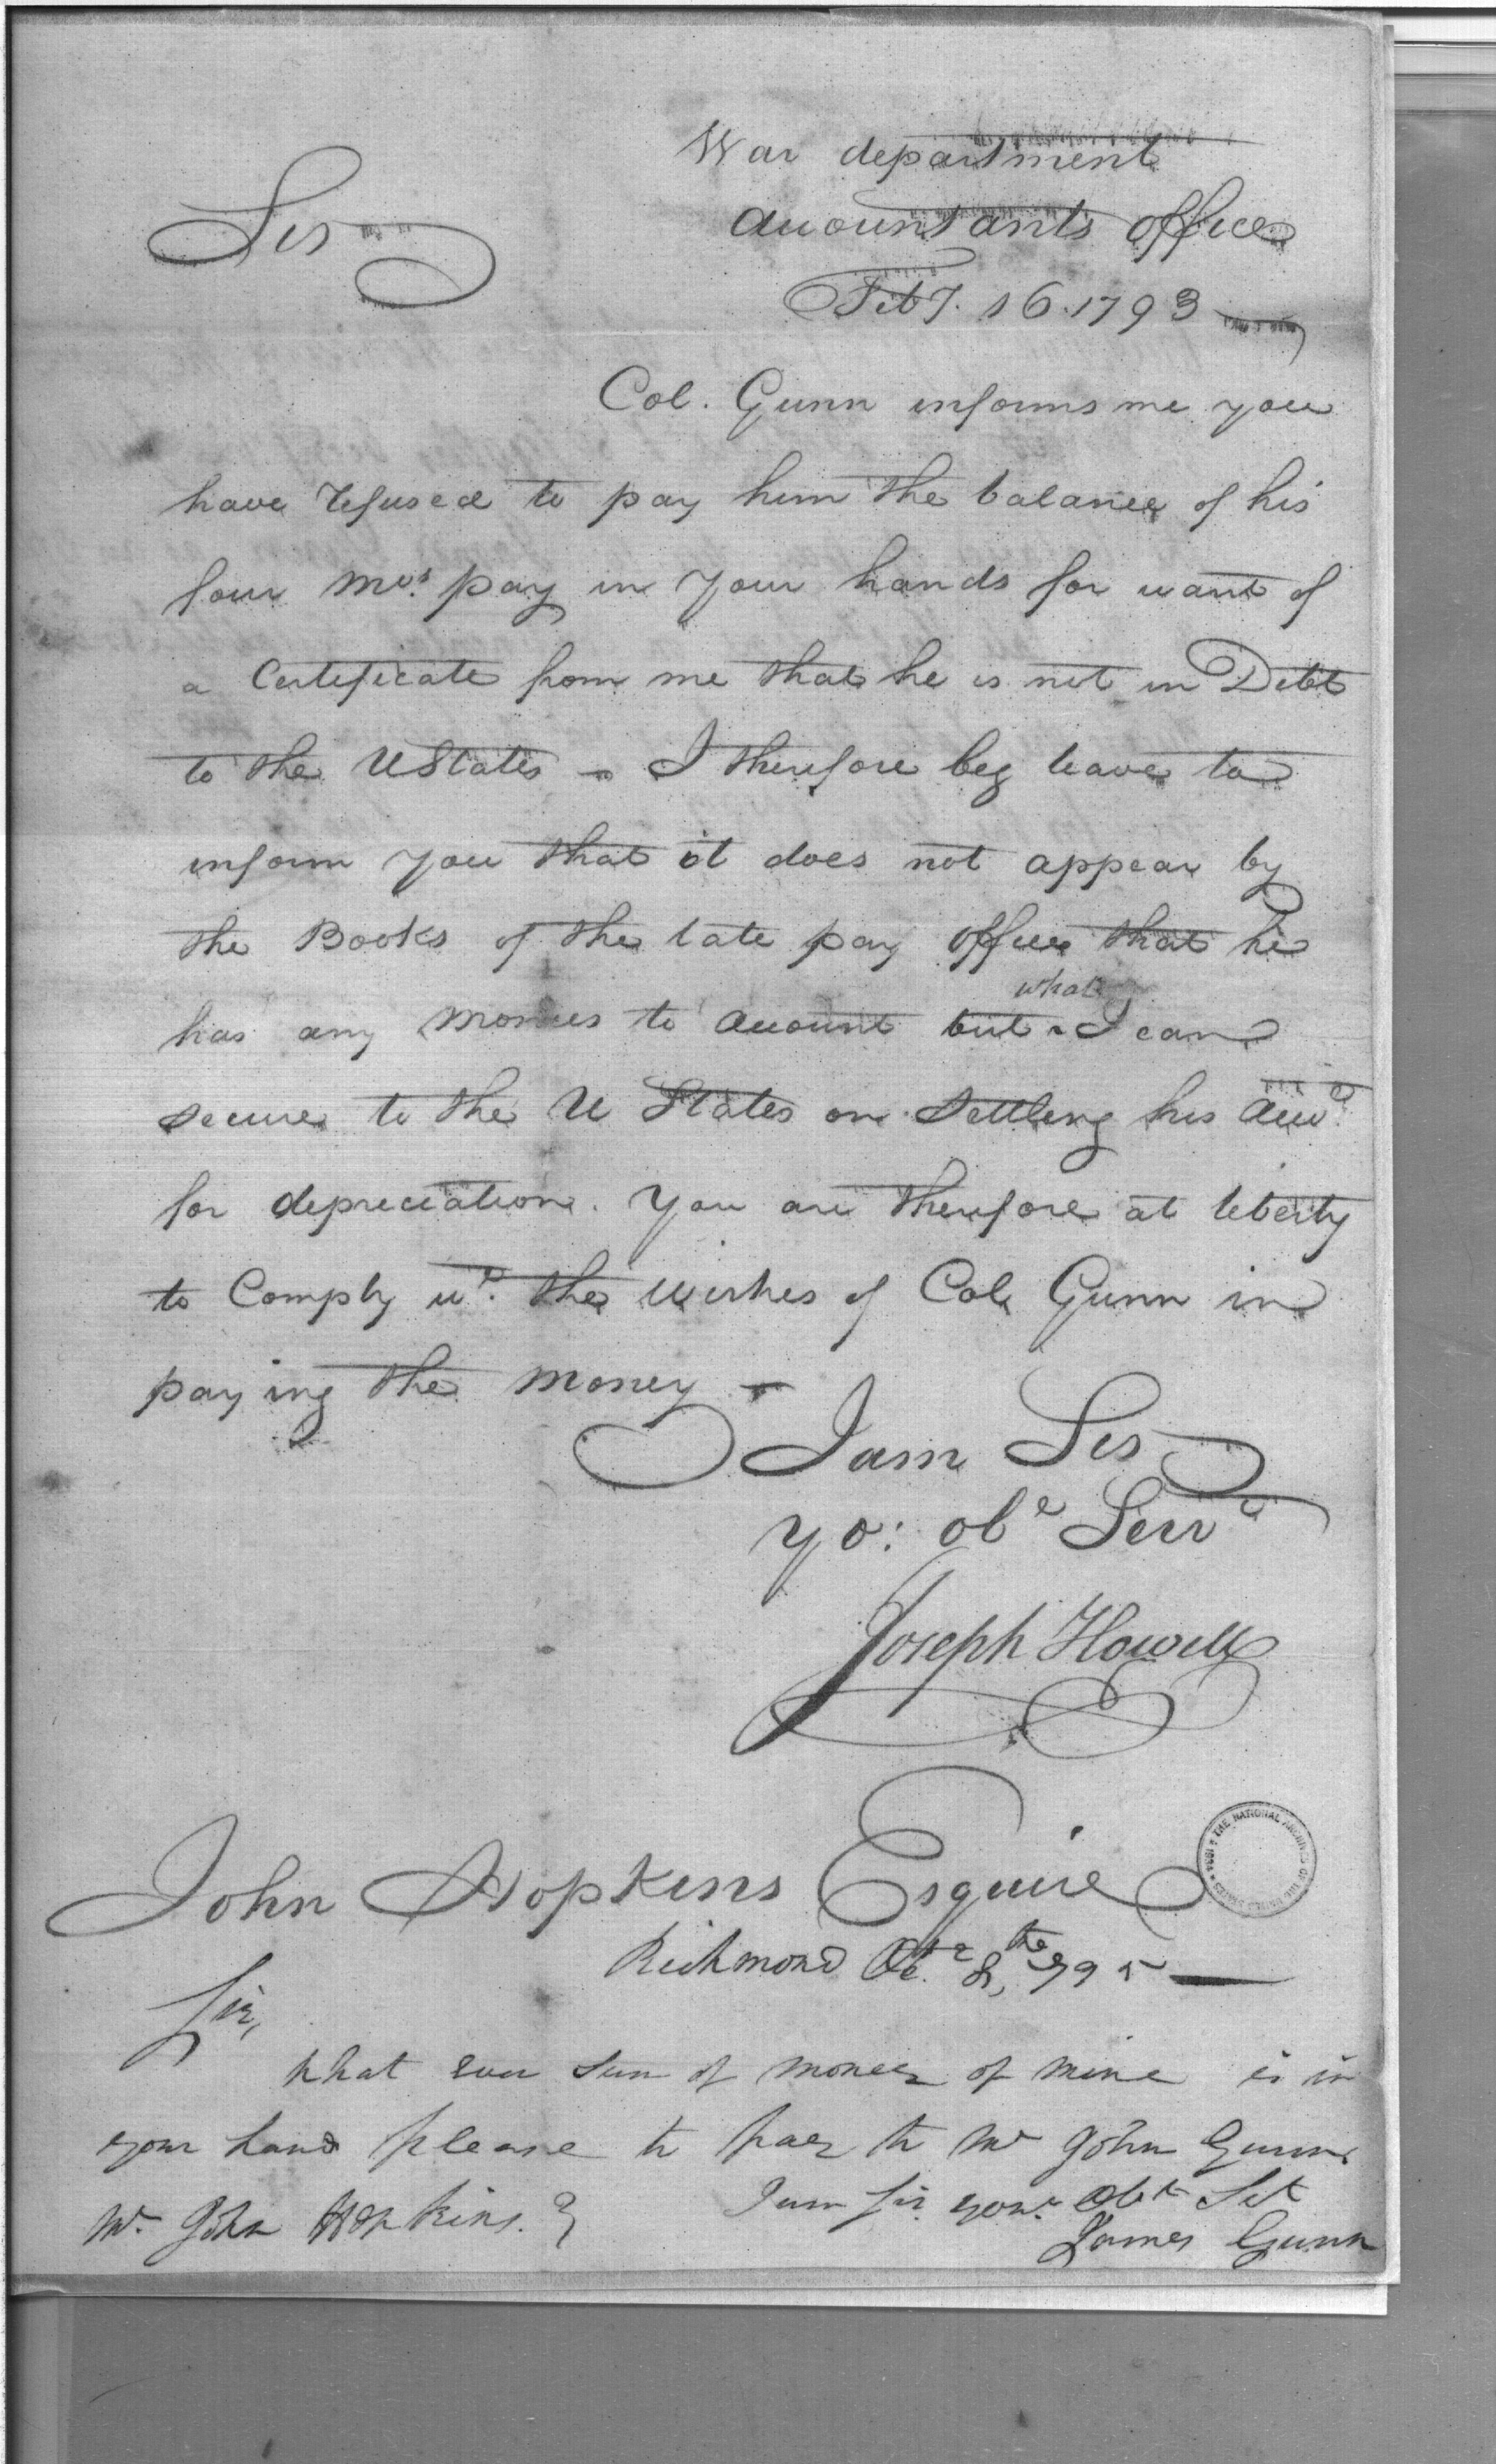 War department
Accountants office
Sir
Feby. 16. 1793
Col. Gunn informs me you
have refused to pay him the balance of his
four Mos. pay in your hands for want of
a Certificate from me that he is not in Debt
to the UStates - I therefore beg leave to
inform you that it does not appear by
the Books of the late pay office that he
has any monies to account but what I can
secure to the U States on settling his Acco.
for depreciation. You are therefore at liberty
to Comply wh. the wishes of Col. Gunn in
paying the money -
I am Sir
yo: obt Servt
Joseph Howell
John Hopkins Esquire
THE NATIONAL ARCHIVES OF THE UNITED STATES 1934
Richmond Octr. 8th 95
Sir,
What ever sum of money of mine is in
your hand please to pay to Mr John Gunn
I am Sir your Obt St
Mr John Hopkins.
James Gunn